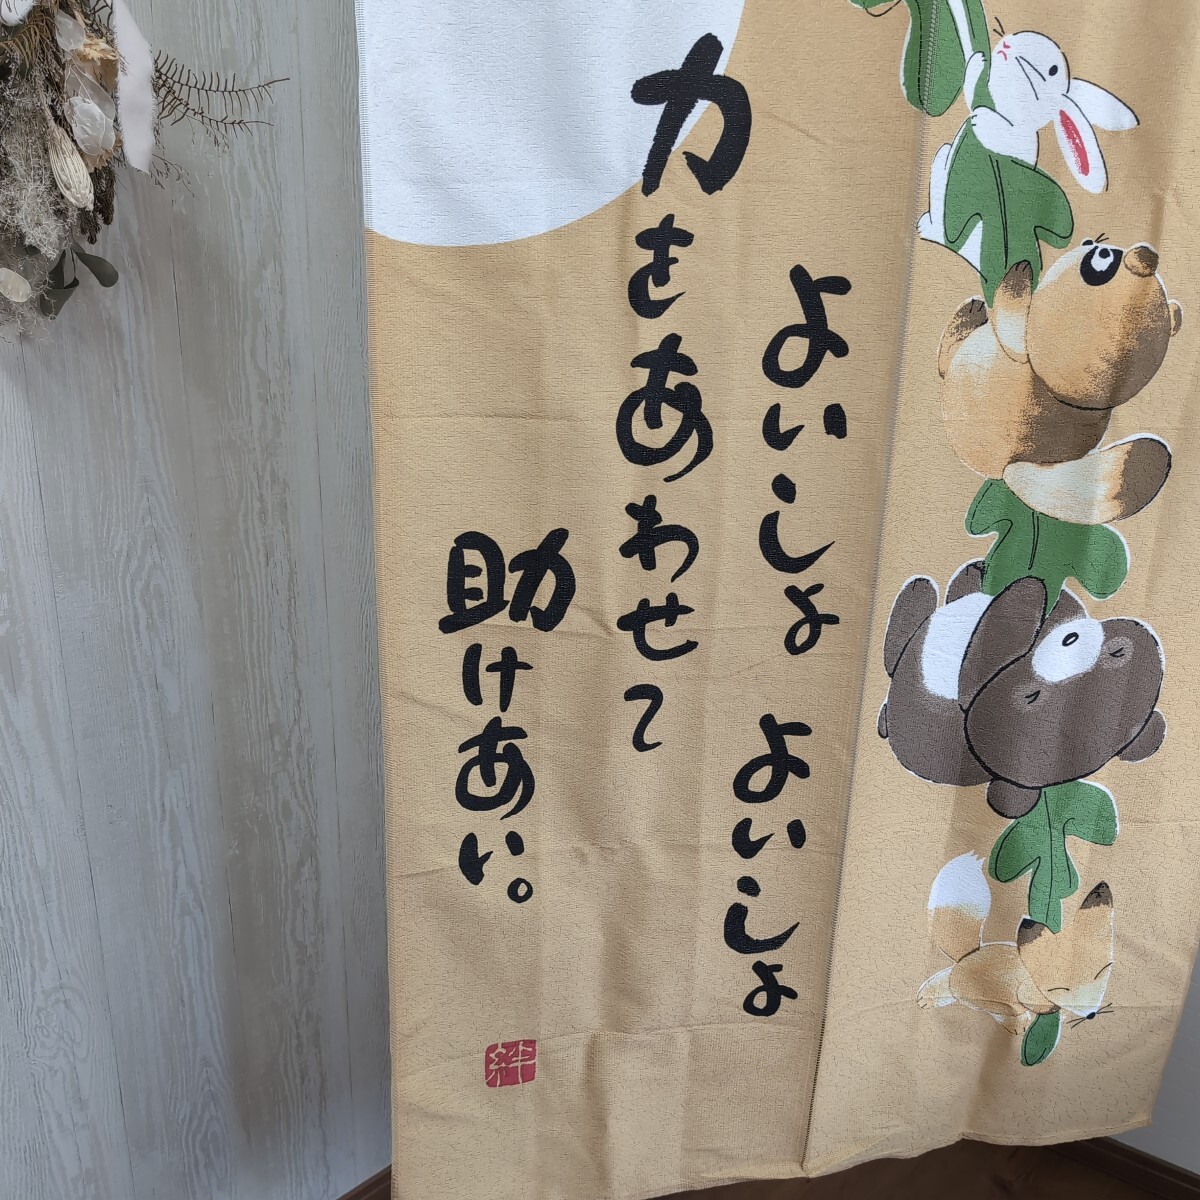 よいしょ よいしょ
力をあわせて
助けあい。
絆